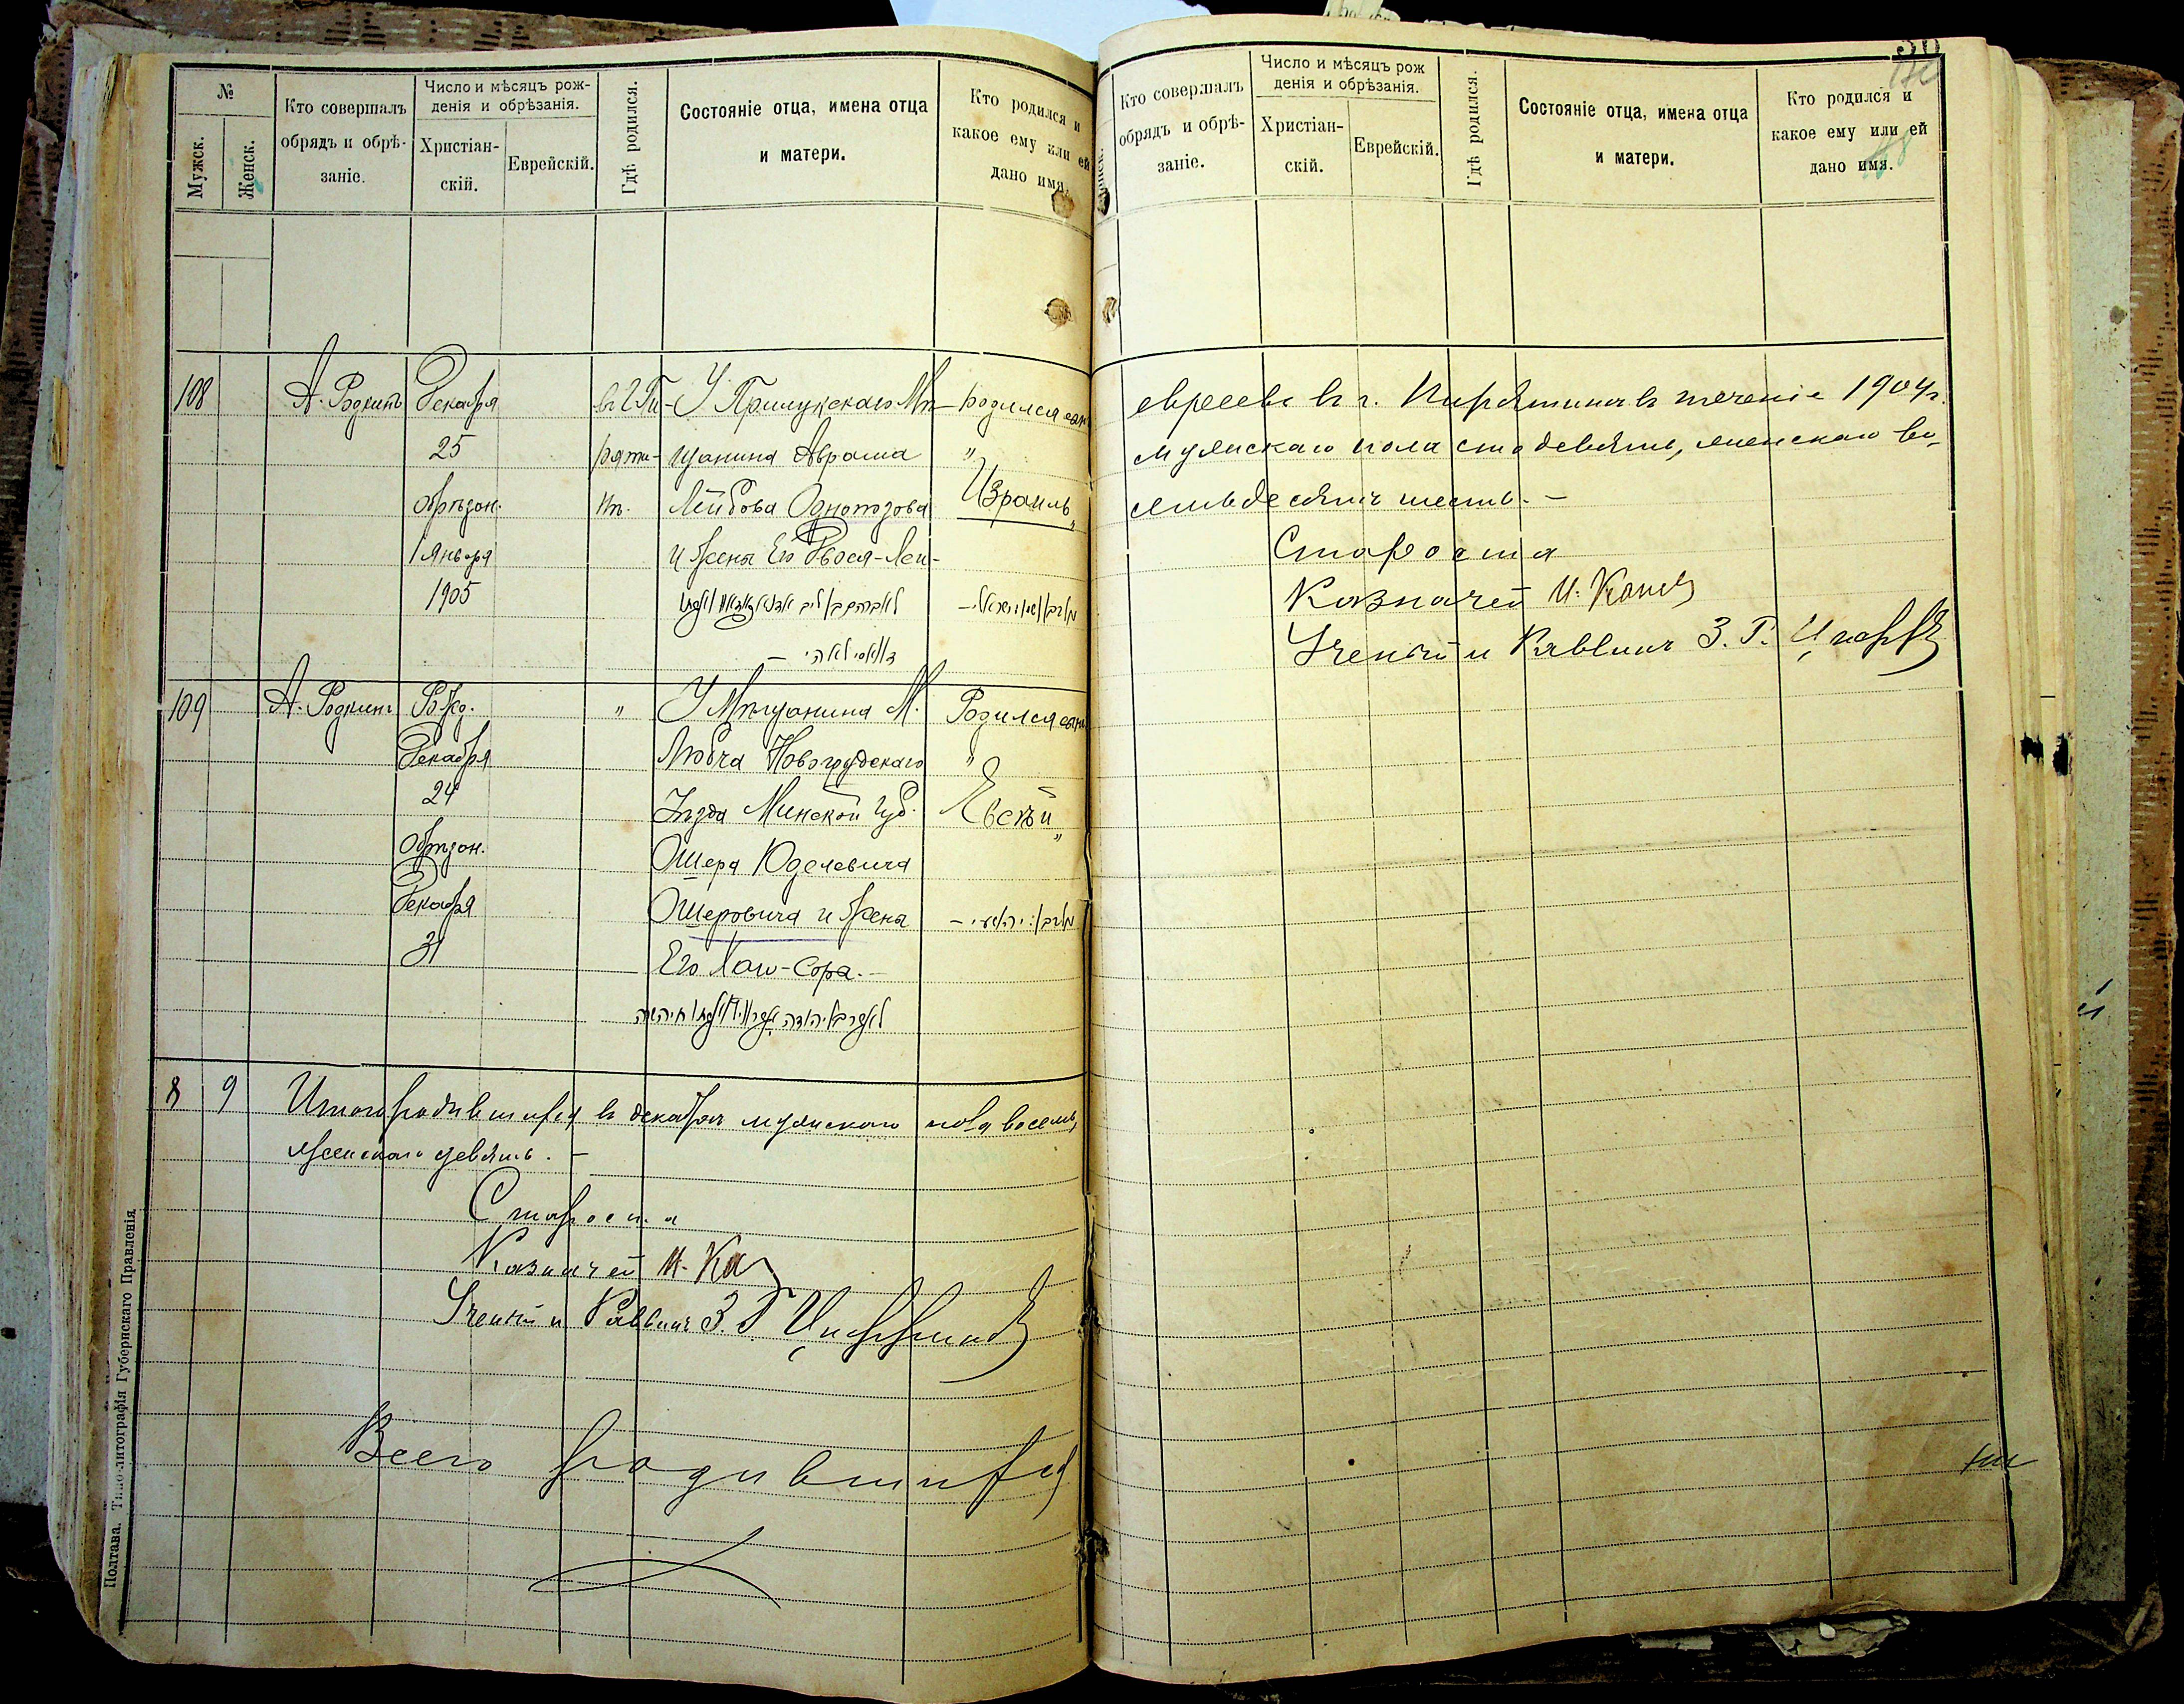 №
Мужск.
Женск.
Кто совершалъ
обрядъ и обрѣ-
заніе.
Число и мѣсяцъ рож-
денія и обрѣзанія.
Христіан-
скій.
Еврейскій.
Гдѣ родился.
Состояніе отца, имена отца
и матери.
Кто родился и
какое ему или ей
дано имя.
108
А. Родкинъ
Декабря
25
обрѣзан.
1 Января
1905
въ г. Пи-
ряти-
нѣ.
У Прилукскаго Мѣ-
щанина Абрама
Лейбова Однопозова
и жена Его Двося-Леи-
родился сынъ
"
Израиль
"
109
А. Родкинъ
Рожд.
Декабря
24
Обрѣзан.
Декабря
31
"
У Мѣщанина М.
Любча Новогрудскаго
Уѣзда Минской губ.
Ошера Юделевича
Ошеровича и жена
Его Хая-Сора.-
Родился сынъ
"
Евсѣй
"
8 9 Итого родившихся въ декабрѣ мужскаго пола восемь,
женскаго девять. -
Староста
Казначей И. Ка
Ученый Раввинъ З. Г.
Всего родившихся
Полтава. Типо-литографія Губернскаго Правленія
Кто совершалъ
обрядъ и обрѣ-
заніе.
Число и мѣсяцъ рож
денія и обрѣзанія.
Христіан-
скій.
Еврейскій.
Гдѣ родился.
Состояніе отца, имена отца
и матери.
Кто родился и
какое ему или ей
дано имя.
евреевъ въ г. Пирятинѣ въ теченіе 1904 г.
мужскаго пола сто девять, женскаго во-
семьдесятъ шесть. -
Староста
Казначей И. Канев
Ученый Раввинъ З. Г.